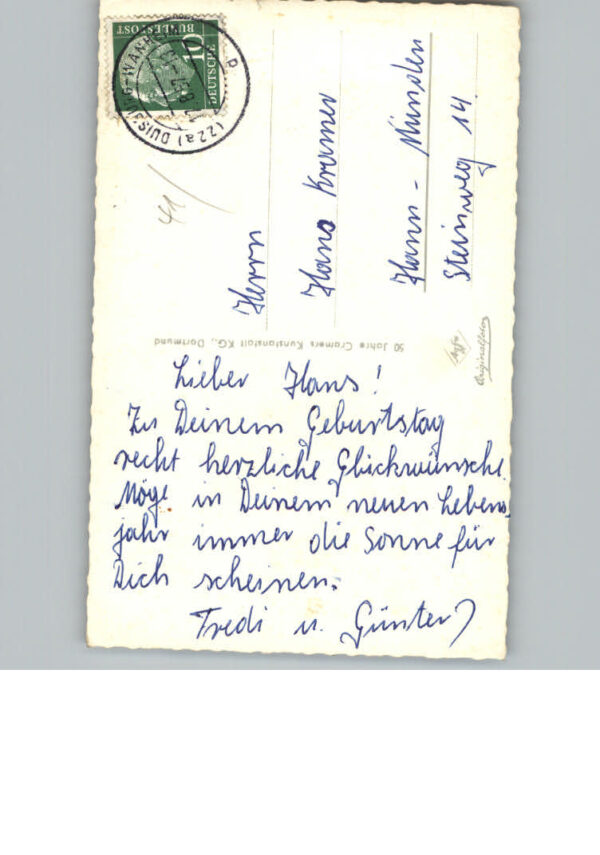 Lieber Hans!
Zu Deinem Geburtstag
recht herzliche Glückwünsche.
Möge in Deinem neuen Lebens-
jahr immer die Sonne für
Dich scheinen.
Fredi u. Günter
Herrn
Hans Kramer
Hann - Münden
Steinweg 14.
50 Jahre Cramers Kunstanstalt KG., Dortmund
Agfa
Originalfoto
41/
DEUTSCHE
BUNDESPOST
10
(22a) DUISBURG-WANHEIM